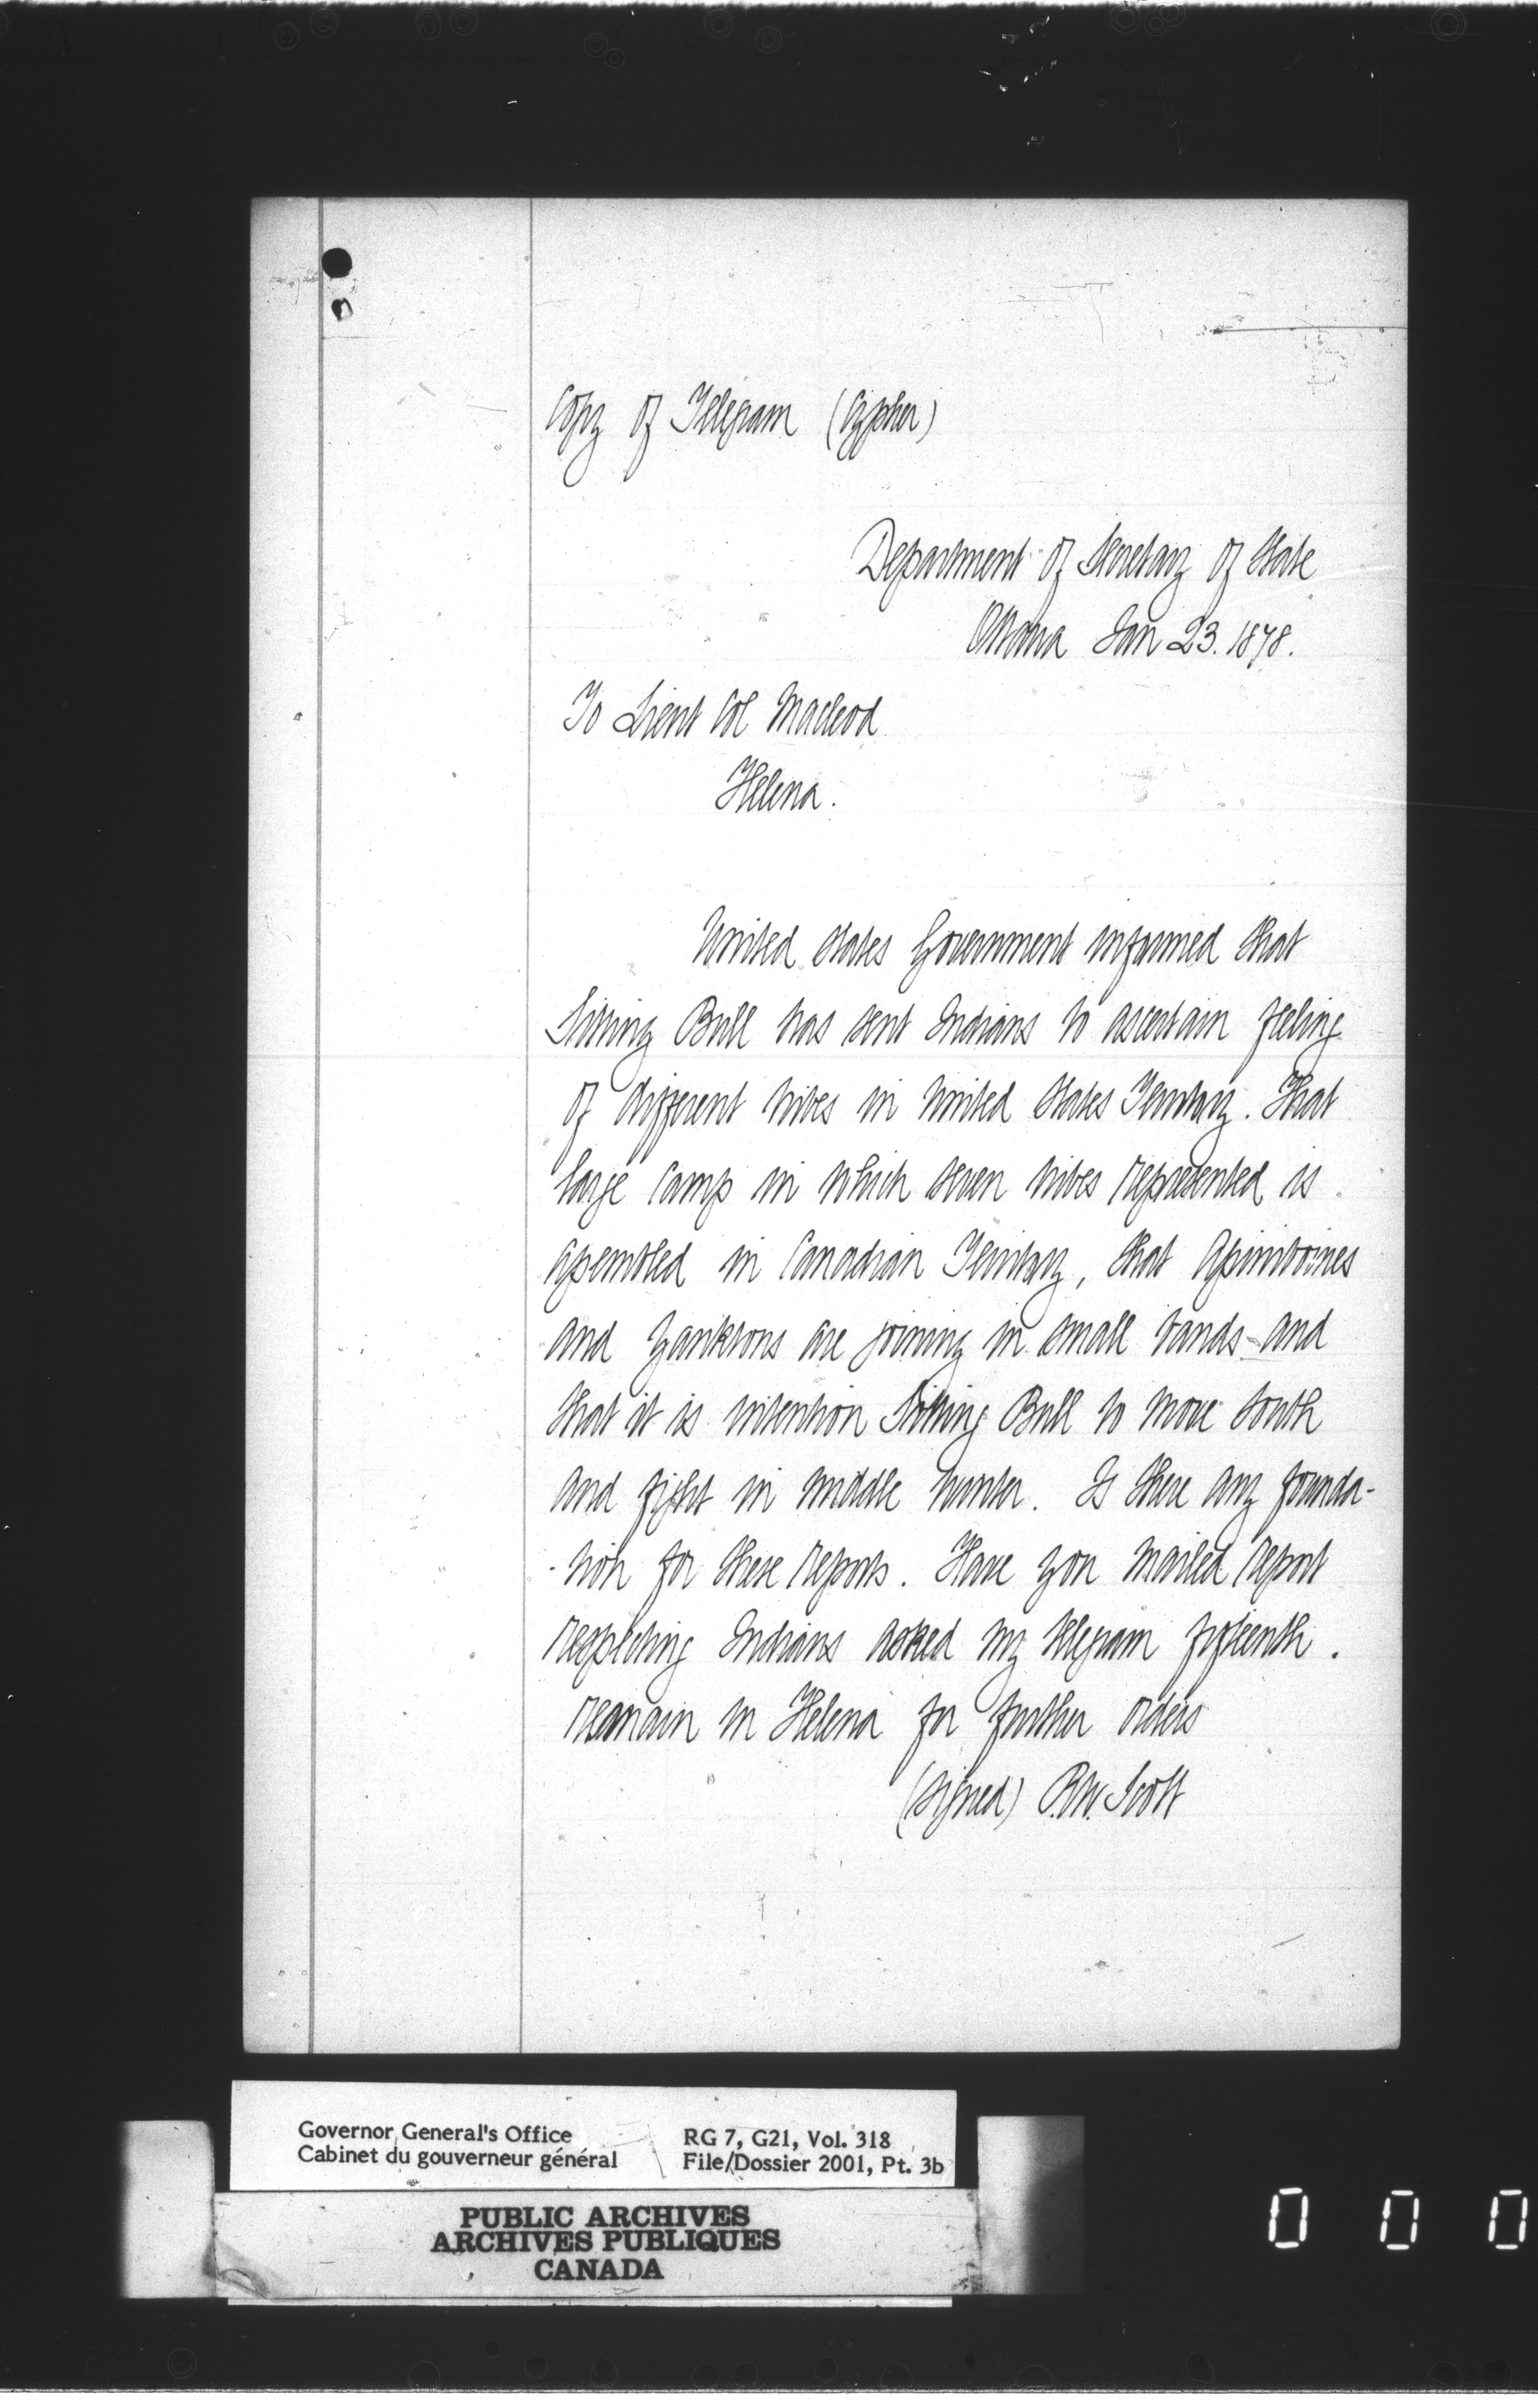 Copy of Telegram (Cypher)
Department of Secretary of State
Ottawa Jan 23. 1878.
To Lieut Col Macleod
Helena.
United States Government informed that
Sitting Bull has sent Indians to ascertain feeling
of different tribes in United States Territory. That
large camp in which seven tribes represented is
assembled in Canadian Territory, that Assiniboines
and Yanktons are joining in small bands and
that it is intention Sitting Bull to move South
and fight in middle winter. Is there any founda-
-tion for these reports. Have you mailed report
respecting Indians asked my telegram fifteenth.
Remain in Helena for further orders
(signed) R.W. Scott
Governor General's Office
Cabinet du gouverneur général
RG 7, G21, Vol. 318
File/Dossier 2001, Pt. 3b
PUBLIC ARCHIVES
ARCHIVES PUBLIQUES
CANADA
0 0 0